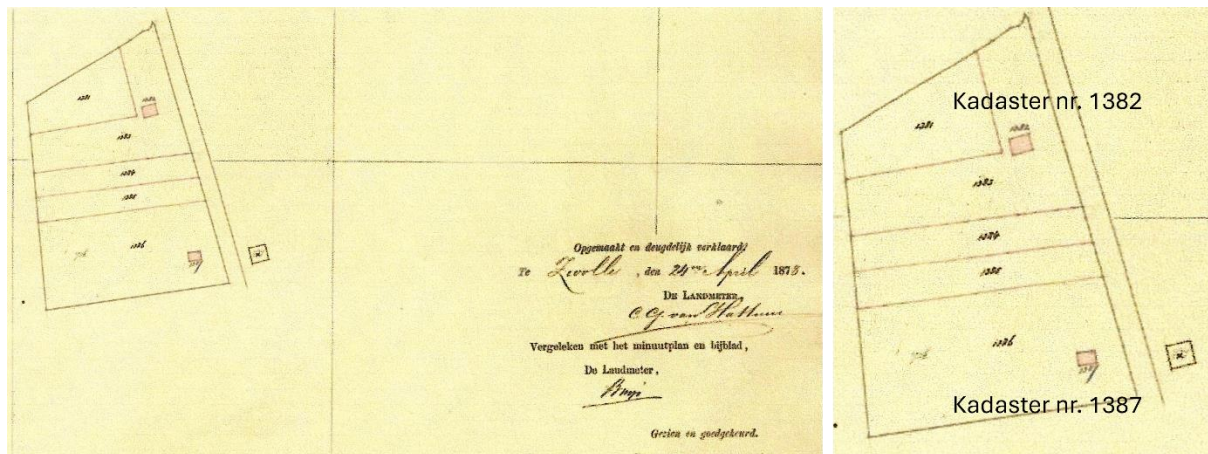 1381
1382
1383
1384
1385
1386
1387
Opgemaakt en deugdelijk verklaard:
Te Zwolle, den 24en April 1878.
DE LANDMETER,
C. G. van Hattum
Vergeleken met het minuutplan en bijblad,
De Landmeter,
Gezien en goedgekeurd.
Kadaster nr. 1382
1381
1382
1383
1384
1385
1386
1387
Kadaster nr. 1387